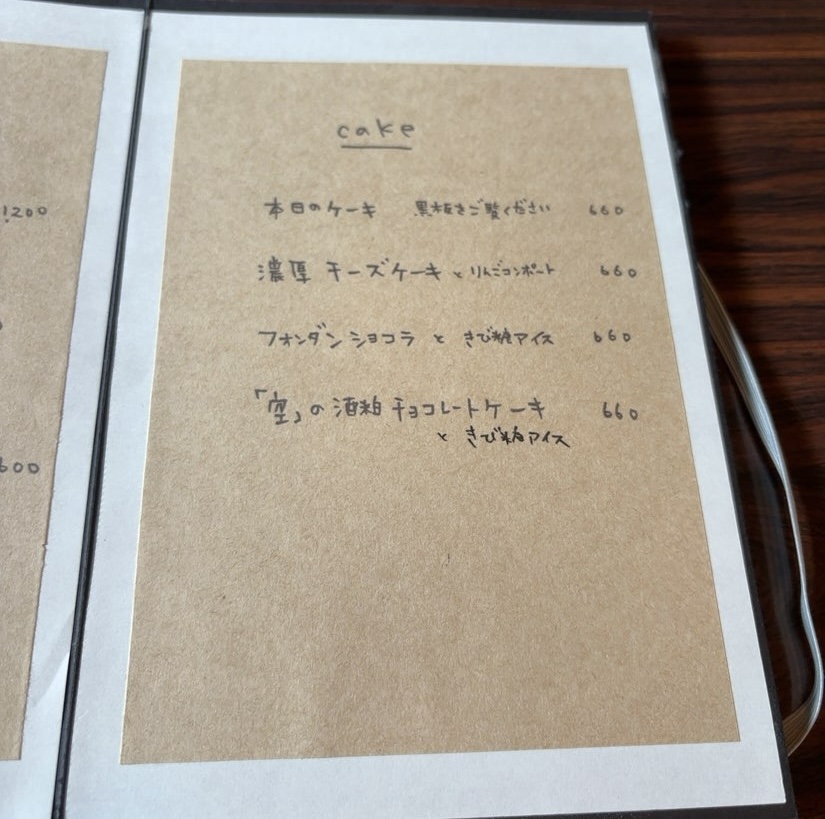 1200
600
cake
本日のケーキ 黒板をご覧ください 660
濃厚 チーズケーキ と りんごコンポート 660
フォンダンショコラ と きび糖アイス 660
「空」の酒粕チョコレートケーキ 660
と きび糖アイス